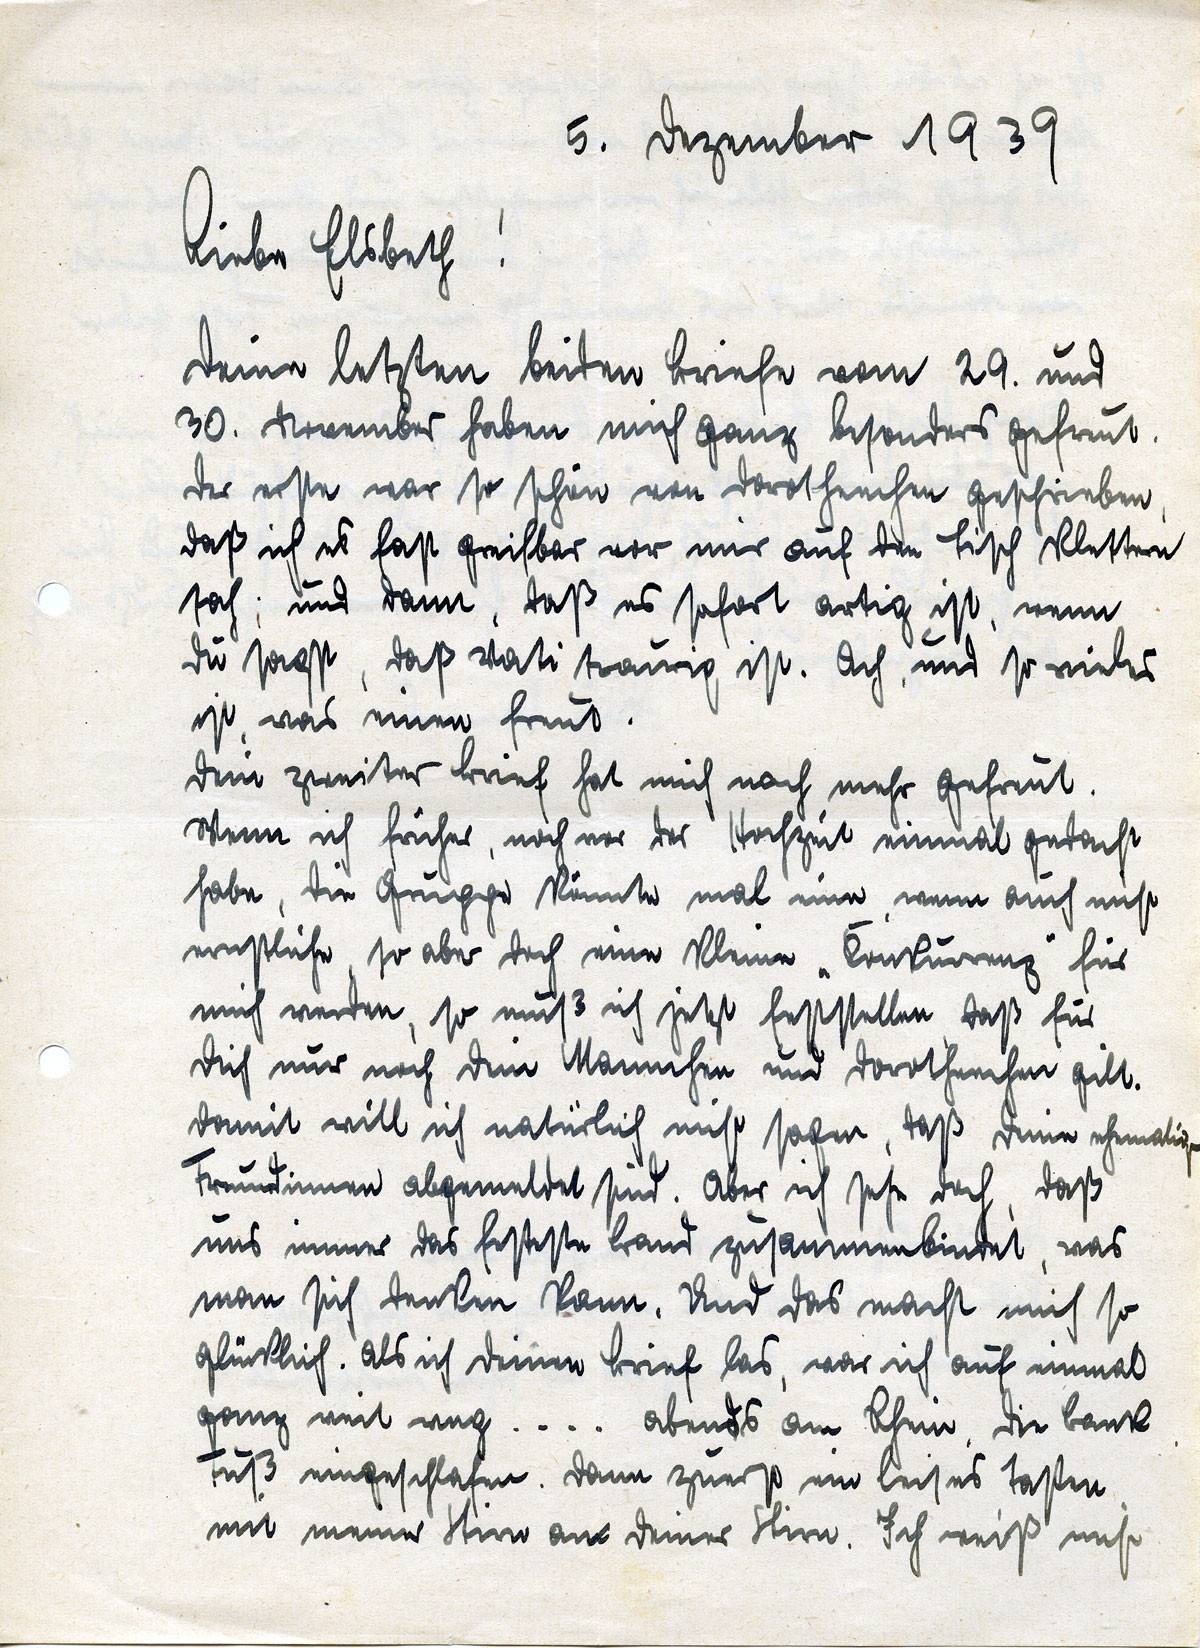 5. Dezember 1939
Liebe Elsbeth!
Deine letzten beiden Briefe vom 29. und
30. November haben mich ganz besonders gefreut.
Der erste war so schön von Dorotheechen geschrieben,
daß ich es fast greifbar vor mir auf den Tisch klettern
sah; und dann, daß es sofort artig ist, wenn
Du sagst, daß Vati traurig ist. Ach, und so vieles
ist, was einen freut.
Dein zweiter Brief hat mich noch mehr gefreut.
Wenn ich früher, noch vor der Hochzeit einmal gedacht
habe, die Gruppe könnte mal eine, wenn auch nicht
ernstliche, so aber doch eine kleine „Konkurrenz" für
mich werden, so muß ich jetzt feststellen, daß für
Dich nur noch Dein Mannchen und Dorotheechen gilt.
Damit will ich natürlich nicht sagen, daß Deine ehemaligen
Freundinnen abgemeldet sind. Aber ich sehe doch, daß
uns immer das festeste Band zusammenbindet, was
man sich denken kann. Und das macht mich so
glücklich. Als ich Deinen Brief las, war ich auf einmal
ganz weit weg .... abends am Rhein, die Bank
Fuß eingeschlafen. Dann zuerst ein leises Tasten
mit meiner Stirn an Deiner Stirn. Ich weiß nicht